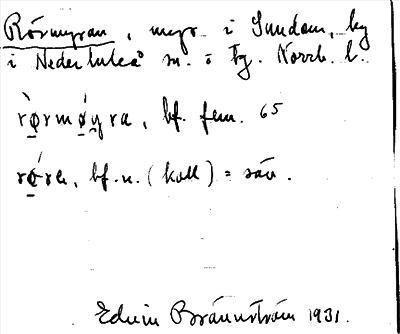 Rörmyran, myr i Sundom, by
i Nederluleå sn. o tg. Norrb. l.
rø̀rmǿyra, bf. fem. 65
rǿre, bf. n. (koll) = säv.
Edvin Brännström 1931.